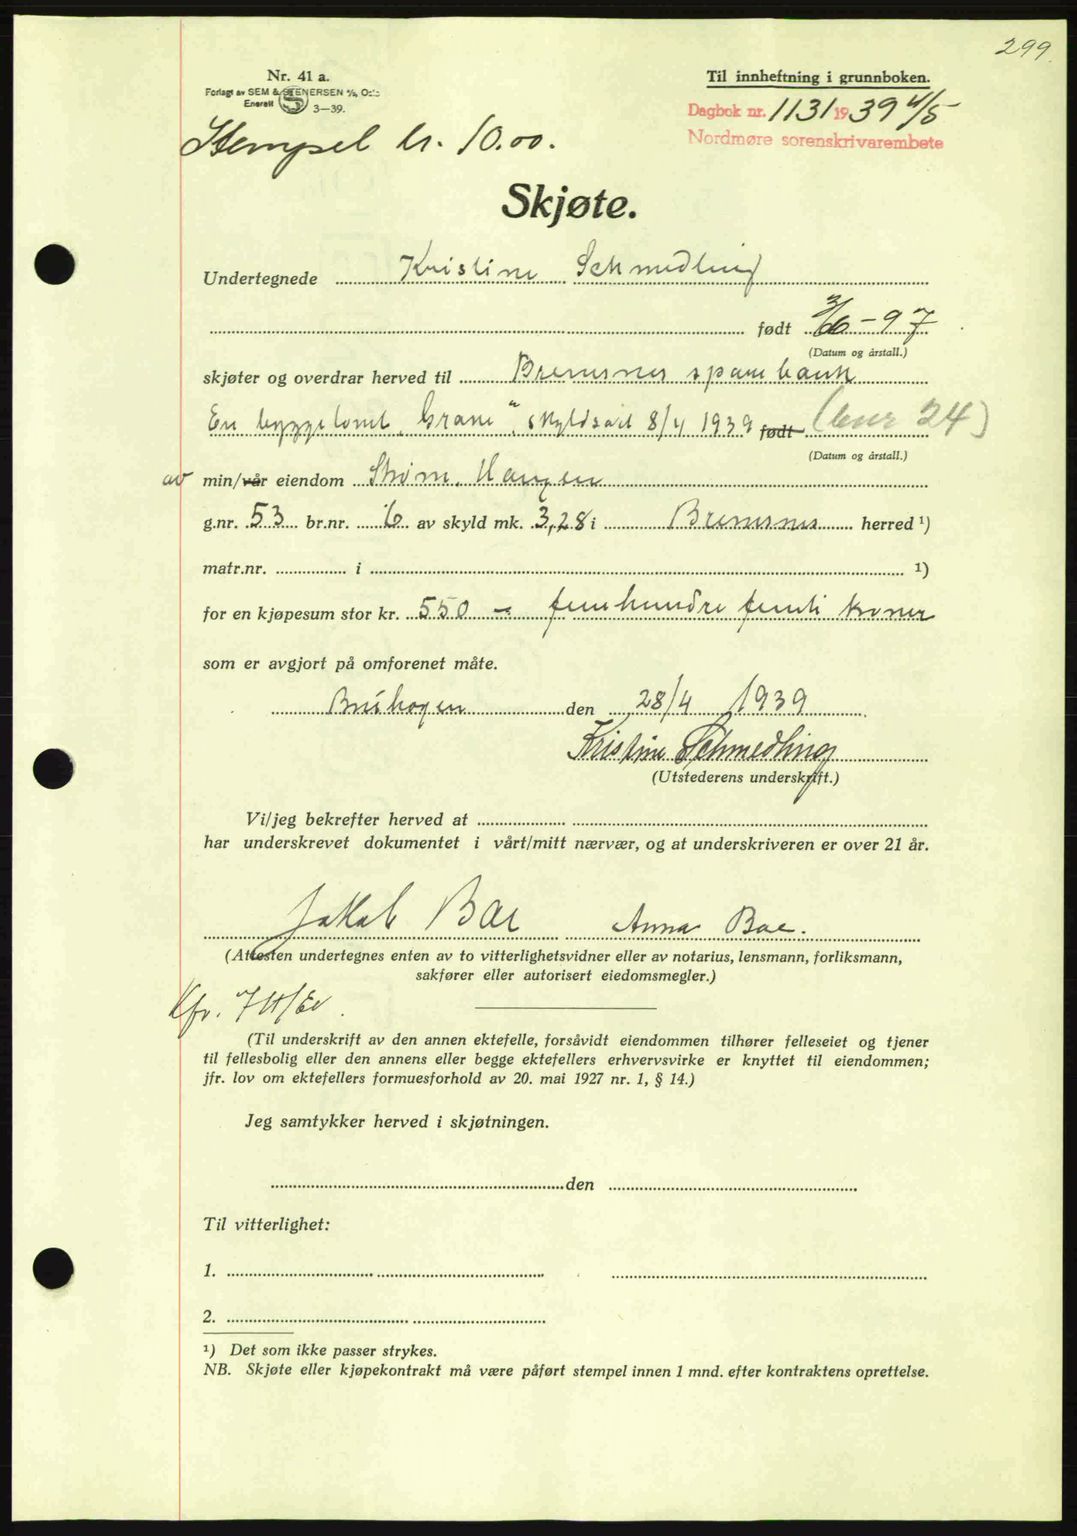 299.
Nr. 41 a.
Forlagt av SEM & STENERSEN A/S, Oslo
Enerett 3—39.
Til innheftning i grunnboken.
Dagbok nr. 1131 1939 4/5
Nordmøre sorenskrivarembete
Stempel kr. 10.00.
Skjøte.
Undertegnede Kristine Schmedling
født 3/6 - 97
(Datum og årstall.)
skjøter og overdrar herved til Bremsnes sparebank
En byggetomt „Grane“, skyldsatt 8/4 1939 født (bnr 24)
(Datum og årstall.)
av min/vår eiendom Strøm, Haugen
g.nr. 53 br.nr. 6 av skyld mk. 3,28 i Bremsnes herred ¹)
matr.nr. i ¹)
for en kjøpesum stor kr. 550 - femhundre femti kroner
som er avgjort på omforenet måte.
Bruhagen den 28/4 1939
Kristine Schmedling
(Utstederens underskrift.)
Vi/jeg bekrefter herved at
har underskrevet dokumentet i vårt/mitt nærvær, og at underskriveren er over 21 år.
Jakob Bae Anna Bae.
(Attesten undertegnes enten av to vitterlighetsvidner eller av notarius, lensmann, forliksmann,
sakfører eller autorisert eiedomsmegler.)
Kfr.
(Til underskrift av den annen ektefelle, forsåvidt eiendommen tilhører felleseiet og tjener
til fellesbolig eller den annens eller begge ektefellers erhvervsvirke er knyttet til eiendommen;
jfr. lov om ektefellers formuesforhold av 20. mai 1927 nr. 1, § 14.)
Jeg samtykker herved i skjøtningen.
den
Til vitterlighet:
1.
2.
¹) Det som ikke passer strykes.
NB. Skjøte eller kjøpekontrakt må være påført stempel innen 1 mnd. efter kontraktens oprettelse.